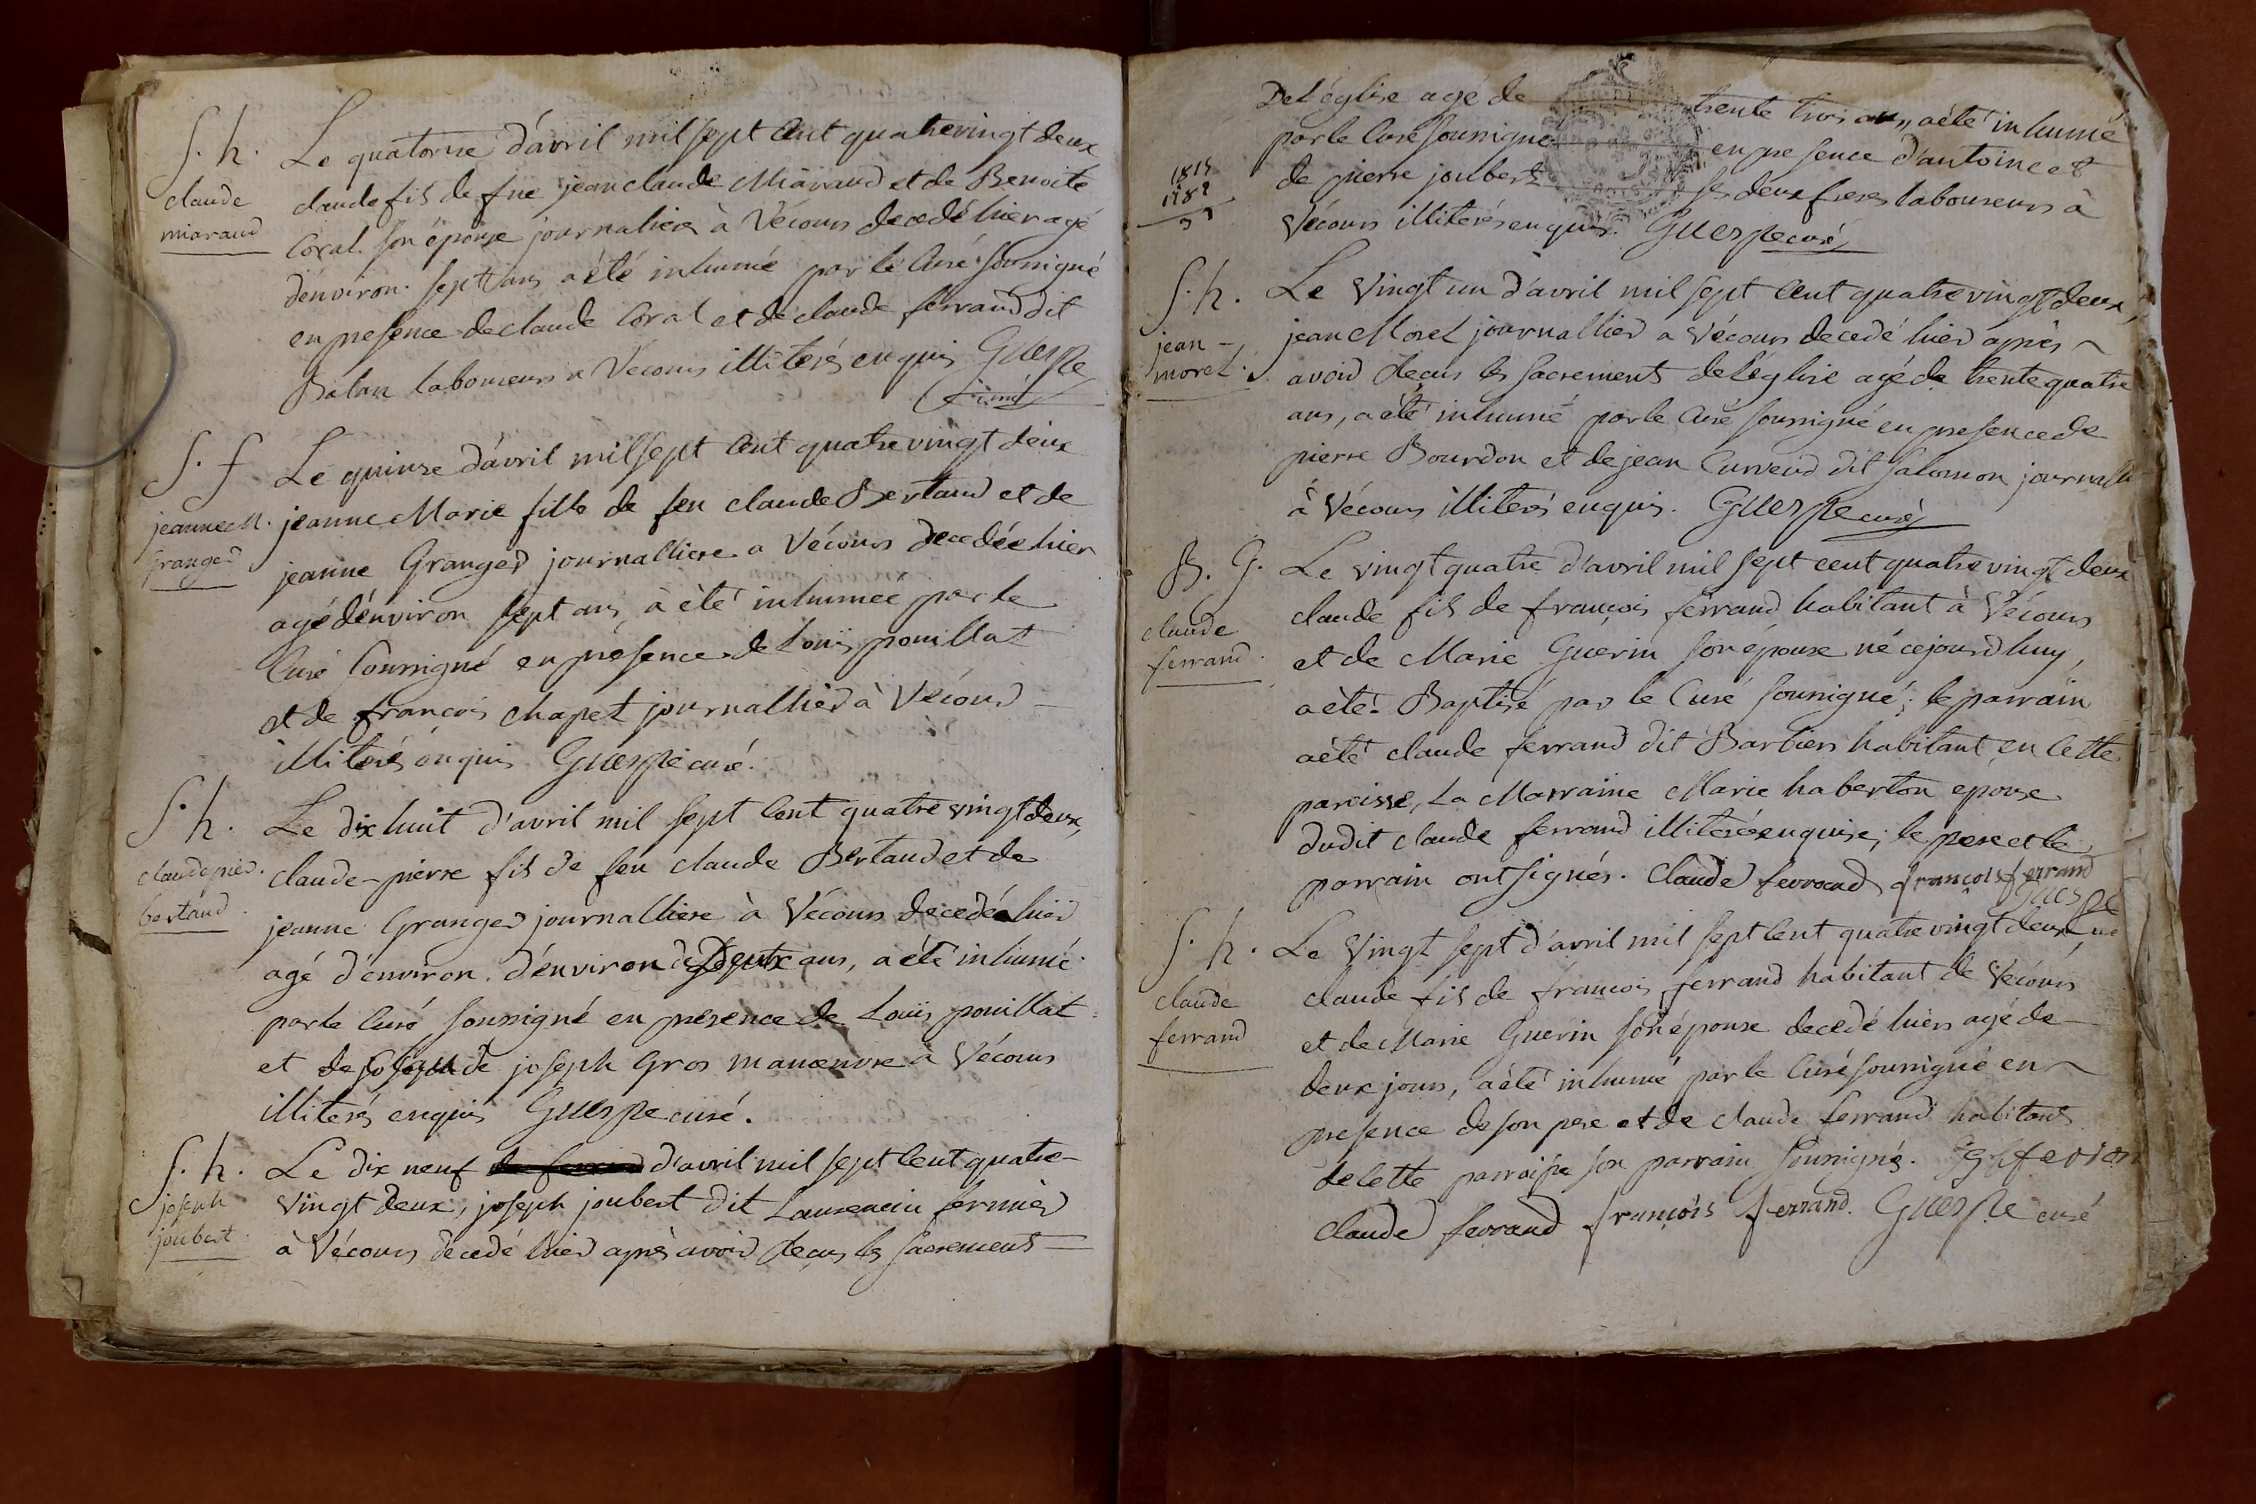 S. h.
claude
miaraud
Le quatorze d'avril mil sept cent quatrevingt deux
claude fils de feu jean claude Miaraud et de Benoite
Coral son épouse journaliere à Vécours decedé hier agé
d'environ sept ans a été inhumé par le Curé soussigné
en presence de claude Coral et de claude ferrand dit
Balan laboureurs a Vecours illiterés enquis Guespe
Curé
S. f
jeanne M.
Granger
Le quinze d'avril mil sept cent quatre vingt deux
jeanne Marie fille de feu claude Bertaud et de
jeanne Granger journalliere a Vécours decedée hier
agé d'environ sept ans, a été inhumee par le
Curé soussigné en présence de Louis pouillat
et de françois chapet journallier à Vécours
illiterés enquis Guespe curé.
S. h.
claude pier.
bertaud.
Le dix huit d'avril mil sept cent quatre vingt deux,
claude-pierre fils de feu claude Bertaud et de
jeanne Granger journalliere à Vécours decedé hier
agé d'environ d'environ deux ans, a été inhumé
par le Curé soussigné en presence de Louis pouillat
et de joseph de joseph Gros manoeuvre à Vécours
illiterés enquis Guespe curé.
S. h.
joseph
joubert.
Le dix neuf d'avril mil sept cent quatre-
vingt deux, joseph joubert dit Laurencin fermier
à Vécours decedé hier après avoir reçus les sacrements
De l'église agé de trente trois ans, a été inhumé
par le Curé soussigné en presence d'antoine et
de pierre joubert ses deux freres laboureurs à
Vécours illiterés enquis. Guespe curé
1815
1782
33
S. h.
jean -
morel.
Le Vingt un d'avril mil sept cent quatre vingt deux,
jean Morel journallier a Vécours decedé hier après
avoir reçus les sacrements de l'église agé de trente quatre
ans, a été inhumé par le Curé soussigné en presence de
pierre Bourdon et de jean Curveud dit salomon journalli
à Vécours illiterés enquis. Guespe curé
B. G.
claude
ferrand.
Le vingt quatre d'avril mil sept cent quatre vingt deux
claude fils de françois ferrand habitant à Vécours
et de Marie Guerin son épouse né cejourd'huy,
a été Baptisé par le Curé soussigné; le parrain
a été claude ferrand dit Barbier habitant en cette
paroisse, La Marraine Marie haberton epouse
dudit claude ferrand illiterée enquise; le pere et le
parrain ont signés. Claude ferrand françois ferrand
Guespe
curé
S. h.
claude
ferrand
Le Vingt sept d'avril mil sept cent quatre vingt deux
claude fils de françois ferrand habitant de Vecours
et de Marie Guerin son épouse decedé hier agé de
deux jours, a été inhumé par le Curé soussigné en
presence de son pere et de claude ferrand habitant
de cette parroisse son parrain soussignés.
Claude ferrand françois ferrand. Guespe curé